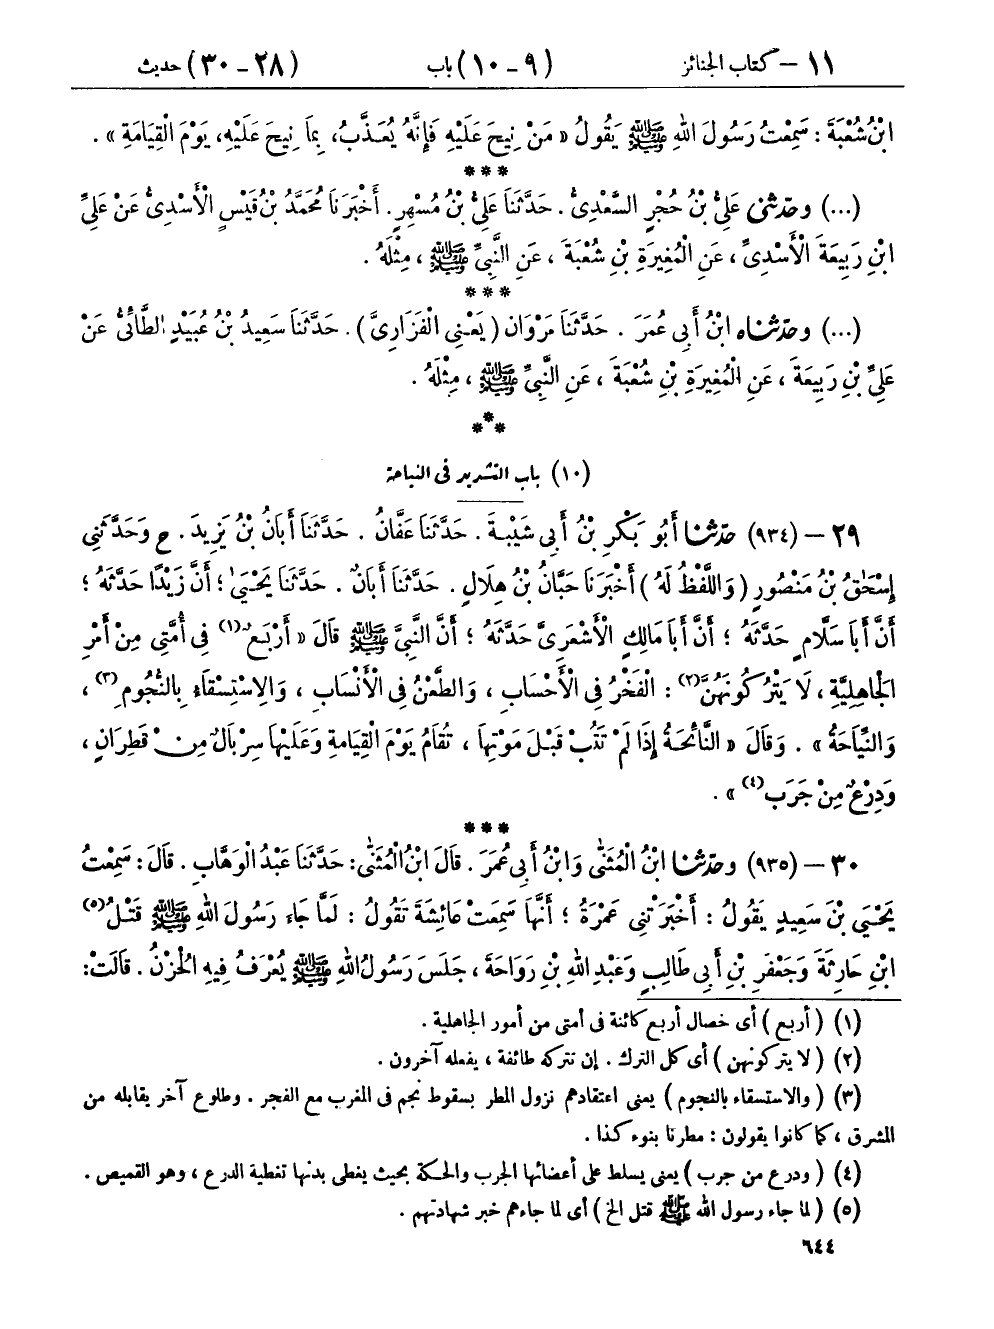 ١١ – كتاب الجنائز (٩ - ١٠) باب (٢٨ - ٣٠) حديث
ابْنُ شُعْبَةَ : سَمِعْتُ رَسُولَ اللهِ ﷺ يَقُولُ « مَنْ نِيحَ عَلَيْهِ فَإِنَّهُ يُعَذَّبُ، بِمَا نِيحَ عَلَيْهِ، يَوْمَ الْقِيَامَةِ » .
***
(...) وحَدَّثَنِي عَلِيُّ بْنُ حُجْرٍ السَّعْدِيُّ . حَدَّثَنَا عَلِيُّ بْنُ مُسْهِرٍ. أَخْبَرَنَا مُحَمَّدُ بْنُ قَيْسٍ الْأَسْدِيُّ عَنْ عَلِيِّ
ابْنِ رَبِيعَةَ الْأَسْدِيِّ ، عَنِ الْمُغِيرَةِ بْنِ شُعْبَةَ ، عَنِ النَّبِيِّ ﷺ ، مِثْلَهُ .
***
(...) وحَدَّثَنَاه ابْنُ أَبِي عُمَرَ . حَدَّثَنَا مَرْوَان ( يَعْنِي الْفَزَارِيَّ ) . حَدَّثَنَا سَعِيدُ بْنُ عُبَيْدٍ الطَّائِيُّ عَنْ
عَلِيِّ بْنِ رَبِيعَةَ ، عَنِ الْمُغِيرَةِ بْنِ شُعْبَةَ ، عَنِ النَّبِيِّ ﷺ ، مِثْلَهُ .
***
(١٠) باب التشديد فى النياحة
٢٩ – (٩٣٤) حَدَّثَنَا أَبُو بَكْرِ بْنُ أَبِي شَيْبَةَ . حَدَّثَنَا عَفَّانُ . حَدَّثَنَا أَبَانُ بْنُ يَزِيدَ . ح وَحَدَّثَنِي
إِسْحَاقُ بْنُ مَنْصُورٍ ( وَاللَّفْظُ لَهُ ) أَخْبَرَنَا حَبَّانُ بْنُ هِلَالٍ . حَدَّثَنَا أَبَانٌ . حَدَّثَنَا يَحْيَىٰ ؛ أَنَّ زَيْدًا حَدَّثَهُ ؛
أَنَّ أَبَا سَلَّامٍ حَدَّثَهُ ؛ أَنَّ أَبَا مَالِكٍ الْأَشْعَرِيَّ حَدَّثَهُ ؛ أَنَّ النَّبِيَّ ﷺ قَالَ « أَرْبَعٌ(١) فِي أُمَّتِي مِنْ أَمْرِ
الْجَاهِلِيَّةِ ، لَا يَتْرُكُونَهُنَّ(٢) : الْفَخْرُ فِي الْأَحْسَابِ ، وَالطَّعْنُ فِي الْأَنْسَابِ ، وَالِاسْتِسْقَاءُ بِالنُّجُومِ(٣) ،
وَالنِّيَاحَةُ » . وَقَالَ « النَّائِحَةُ إِذَا لَمْ تَتُبْ قَبْلَ مَوْتِهَا ، تُقَامُ يَوْمَ الْقِيَامَةِ وَعَلَيْهَا سِرْبَالٌ مِنْ قَطِرَانٍ ،
وَدِرْعٌ مِنْ جَرَبٍ(٤) » .
***
٣٠ – (٩٣٥) وحَدَّثَنَا ابْنُ الْمُثَنَّى وَابْنُ أَبِي عُمَرَ . قَالَ ابْنُ الْمُثَنَّى: حَدَّثَنَا عَبْدُ الْوَهَّابِ . قَالَ: سَمِعْتُ
يَحْيَى بْنَ سَعِيدٍ يَقُولُ : أَخْبَرَتْنِي عَمْرَةُ ؛ أَنَّهَا سَمِعَتْ عَائِشَةَ تَقُولُ : لَمَّا جَاءَ رَسُولَ اللهِ ﷺ قَتْلُ(٥)
ابْنِ حَارِثَةَ وَجَعْفَرِ بْنِ أَبِي طَالِبٍ وَعَبْدِ اللهِ بْنِ رَوَاحَةَ ، جَلَسَ رَسُولُ اللهِ ﷺ يُعْرَفُ فِيهِ الْحُزْنُ . قَالَتْ:
(١) ( أربع ) أى خصال أربع كائنة فى أمتى من أمور الجاهلية .
(٢) ( لا يتركونهن ) أى كل الترك . إن تتركه طائفة ، يفعله آخرون .
(٣) ( والاستسقاء بالنجوم ) يعنى اعتقادهم نزول المطر بسقوط نجم فى المغرب مع الفجر . وطلوع آخر يقابله من
المشرق ، كما كانوا يقولون : مطرنا بنوء كذا .
(٤) ( ودرع من جرب ) يعنى يسلط على أعضائها الجرب والحكة بحيث يغطى بدنها تغطية الدرع ، وهو القميص .
(٥) ( لما جاء رسول الله ﷺ قتل الخ ) أى لما جاءهم خبر شهادتهم .
٦٤٤